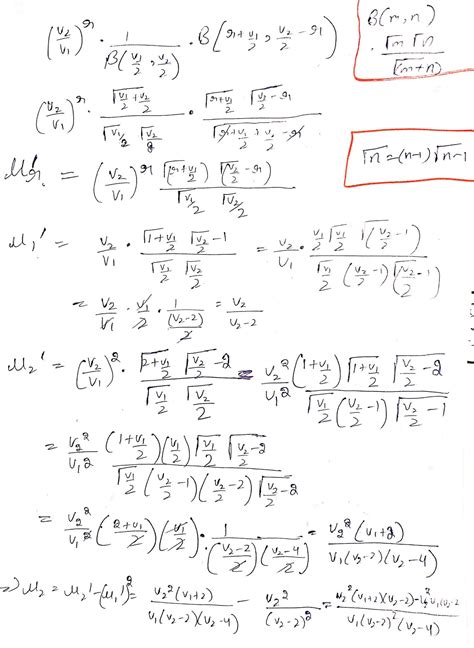 (v₂/v₁)^r · 1/B(v₁/2, v₂/2) · B(r+v₁/2, v₂/2 - r)
B(m,n)
· Γm Γn / Γm+n
(v₂/v₁)^r · Γ(v₁+v₂)/2 / (Γv₁/2 Γv₂/2) · Γr+v₁/2 Γv₂/2 - r / Γr+v₁/2 + v₂/2 - r
Γn = (n-1) Γn-1
μ'r = (v₂/v₁)^r Γ(r+v₁/2) Γ(v₂/2 - r) / (Γv₁/2 Γv₂/2)
μ₁' = v₂/v₁ · Γ1+v₁/2 Γv₂/2 - 1 / (Γv₁/2 Γv₂/2) = v₂/v₁ · v₁/2 Γv₁/2 Γ(v₂/2 - 1) / (Γv₁/2 (v₂/2 - 1) Γv₂/2 - 1)
= v₂/v₁ · v₁/2 · 1/((v₂-2)/2) = v₂/(v₂-2)
μ₂' = (v₂/v₁)² · Γ2+v₁/2 Γv₂/2 - 2 / (Γv₁/2 Γv₂/2) = v₂²/v₁² (1+v₁/2) Γ1+v₁/2 Γv₂/2 - 2 / (Γv₁/2 (v₂/2 - 1) Γv₂/2 - 1)
= v₂²/v₁² (1+v₁/2) (v₁/2) Γv₁/2 Γv₂/2 - 2 / (Γv₁/2 (v₂/2 - 1) (v₂/2 - 2) Γv₂/2 - 2)
= v₂²/v₁² ((2+v₁)/2) (v₁/2) · 1/(((v₂-2)/2) ((v₂-4)/2)) = v₂² (v₁+2) / (v₁(v₂-2)(v₂-4))
⇒ μ₂ = μ₂' - (μ₁')² = v₂² (v₁+2) / (v₁(v₂-2)(v₂-4)) - v₂²/(v₂-2)² = v₂² (v₁+2)(v₂-2) - v₂² v₁(v₂ / (v₁(v₂-2)²(v₂-4))